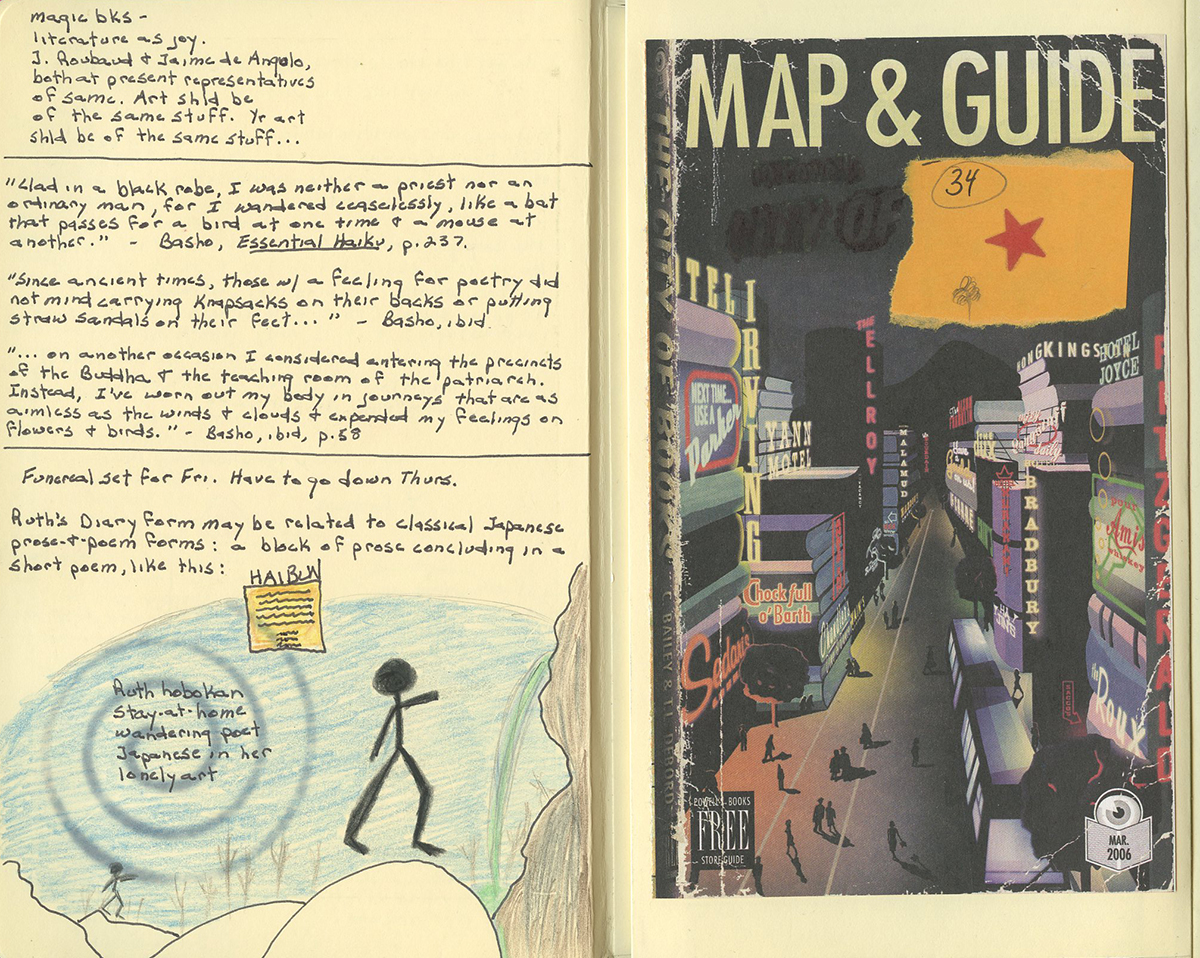 magic bks -
literature as joy.
J. Roubaud & Jaime de Angulo,
both at present representatives
of same. Art shld be
of the same stuff. Yr art
shld be of the same stuff...
"Clad in a black robe, I was neither a priest nor an
ordinary man, for I wandered ceaselessly, like a bat
that passes for a bird at one time & a mouse at
another." - Basho, Essential Haiku, p. 237.
"Since ancient times, those w/ a feeling for poetry did
not mind carrying knapsacks on their backs or putting
straw sandals on their feet..." - Basho, ibid.
"... on another occasion I considered entering the precincts
of the Buddha & the teaching room of the patriarch.
Instead, I've worn out my body in journeys that are as
aimless as the winds & clouds & expended my feelings on
flowers & birds." - Basho, ibid, p. 58
Funereal set for Fri. Have to go down Thurs.
Ruth's Diary form may be related to classical Japanese
prose-&-poem forms: a block of prose concluding in a
short poem, like this:
HAIBUN
Ruth hobokan
stay-at-home
wandering poet
Japanese in her
lonely art
MAP & GUIDE
34
OF
THE CITY OF
BAILEY & TI DEBORD
HOTEL
IRVING
THE
ELLROY
KINGS
HOTEL
JOYCE
NEXT TIME...
USE A
Parker
YANN
MOTEL
MALAMUD
BRADBURY
FITZGERALD
your
Amis
whiskey
Chock full
o'Barth
Sedaris
the
ROUX
POWELL'S BOOKS
FREE
STORE GUIDE
MAR.
2006